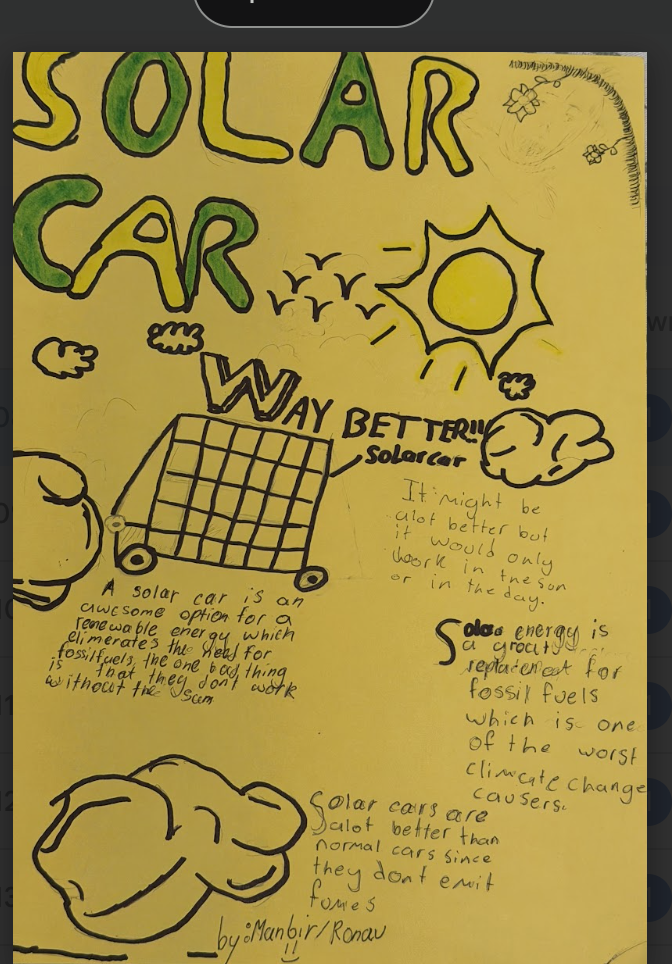 SOLAR
CAR
WAY BETTER!!
Solarcar
It might be
alot better but
it would only
work in the sun
or in the day.
A solar car is an
awesome option for a
renewable energy which
elimerates the need for
fossilfuels, the one bad thing
is that they don't work
without the sum
Solar energy is
a great
replacement for
fossil fuels
which is one
of the worst
climcate change
causers.
Solar cars are
alot better than
normal cars since
they dont emit
fumes
by:Manbir/Ronav